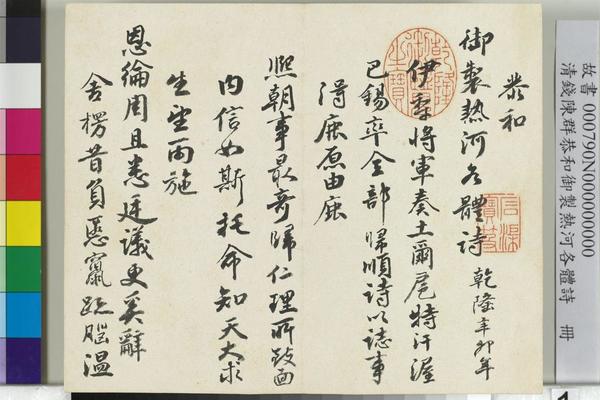 故書 000790N000000000
清錢陳群恭和御製熱河各體詩 冊
恭和
御製熱河各體詩 乾隆辛卯年
伊犁將軍奏土爾扈特汗渥
巴錫率全部歸順詩以誌事
得鹿原由鹿
熙朝事最奇歸仁理所致面
內信如斯托命知天大求
生望雨施
恩綸周且悉廷議更奚辭
舍楞昔負慝竄跡溫
乾隆御覽之寶